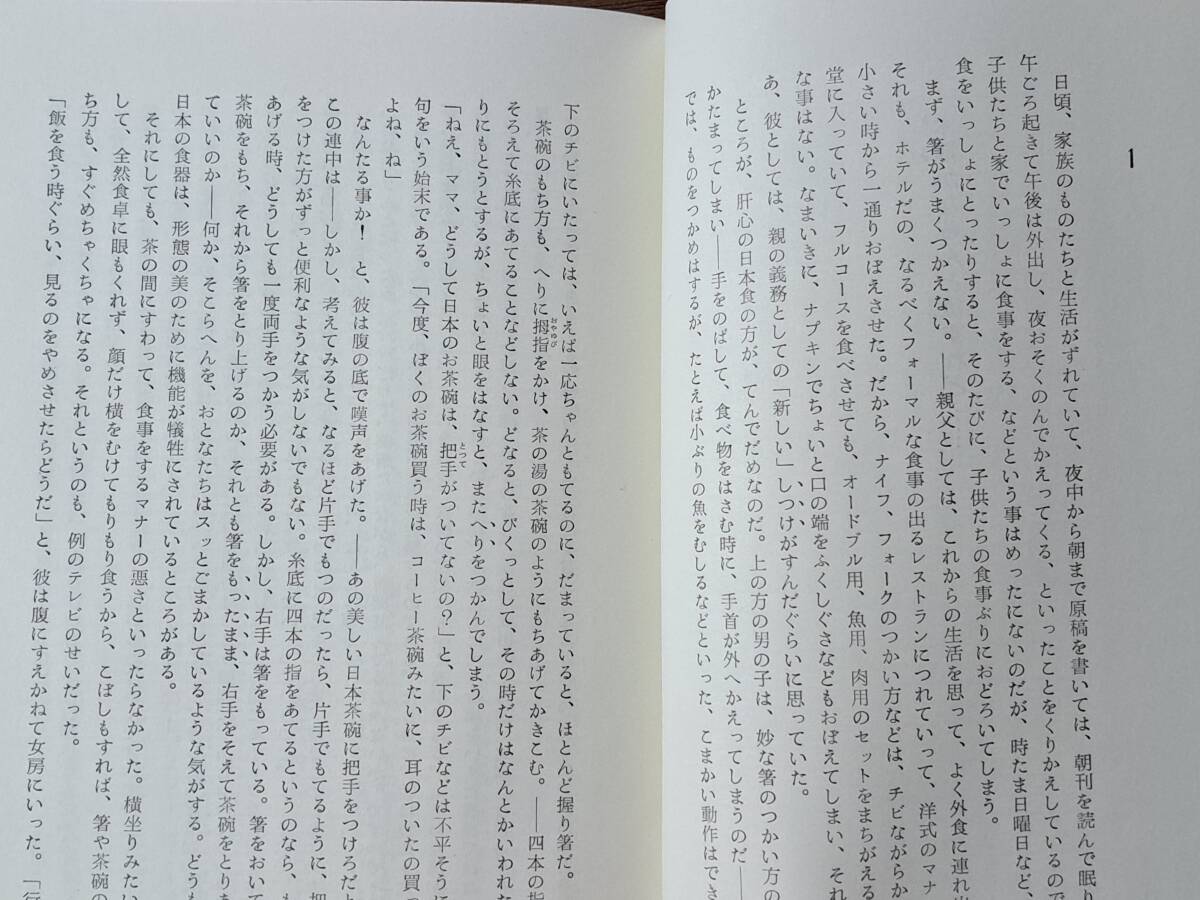 1
日頃、家族のものたちと生活がずれていて、夜中から朝まで原稿を書いては、朝刊を読んで眠り
午ごろ起きて午後は外出し、夜おそくのんでかえってくる、といったことをくりかえしているので
子供たちと家でいっしょに食事をする、などという事はめったにないのだが、時たま日曜日など、
食をいっしょにとったりすると、そのたびに、子供たちの食事ぶりにおどろいてしまう。
まず、箸がうまくつかえない。――親父としては、これからの生活を思って、よく外食に連れ出
それも、ホテルだの、なるべくフォーマルな食事の出るレストランにつれていって、洋式のマナ
小さい時から一通りおぼえさせた。だから、ナイフ、フォークのつかい方などは、チビながらか
堂に入っていて、フルコースを食べさせても、オードブル用、魚用、肉用のセットをまちがえる
な事はない。なまいきに、ナプキンでちょいと口の端をふくしぐさなどもおぼえてしまい、それ
あ、彼としては、親の義務としての「新しい」しつけがすんだぐらいに思っていた。
ところが、肝心の日本食の方が、てんでだめなのだ。上の方の男の子は、妙な箸のつかい方の
かたまってしまい――手をのばして、食べ物をはさむ時に、手首が外へかえってしまうのだ――
では、ものをつかめはするが、たとえば小ぶりの魚をむしるなどといった、こまかい動作はでき
下のチビにいたっては、いえば一応ちゃんともてるのに、だまっていると、ほとんど握り箸だ。
茶碗のもち方も、へりに拇指をかけ、茶の湯の茶碗のようにもちあげてかきこむ。――四本の指
おやゆび
そろえて糸底にあてることなどしない。どなると、びくっとして、その時だけはなんとかいわれた
りにもとうとするが、ちょいと眼をはなすと、またへりをつかんでしまう。
「ねえ、ママ、どうして日本のお茶碗は、把手がついてないの？」と、下のチビなどは不平そうに
とって
句をいう始末である。「今度、ぼくのお茶碗買う時は、コーヒー茶碗みたいに、耳のついたの買っ
よね、ね」
なんたる事か！　と、彼は腹の底で嘆声をあげた。――あの美しい日本茶碗に把手をつけろだと
この連中は――しかし、考えてみると、なるほど片手でもつのだったら、片手でもてるように、把
をつけた方がずっと便利なような気がしないでもない。糸底に四本の指をあてるというのなら、も
あげる時、どうしても一度両手をつかう必要がある。しかし、右手は箸をもっている。箸をおいて
茶碗をもち、それから箸をとり上げるのか、それとも箸をもったまま、右手をそえて茶碗をとりあ
ていいのか――何か、そこらへんを、おとなたちはスッとごまかしているような気がする。どうも
日本の食器は、形態の美のために機能が犠牲にされているところがある。
それにしても、茶の間にすわって、食事をするマナーの悪さといったらなかった。横坐りみたい
して、全然食卓に眼もくれず、顔だけ横をむけてもりもり食うから、こぼしもすれば、箸や茶碗の
ち方も、すぐめちゃくちゃになる。それというのも、例のテレビのせいだった。
「飯を食う時ぐらい、見るのをやめさせたらどうだ」と、彼は腹にすえかねて女房にいった。「行